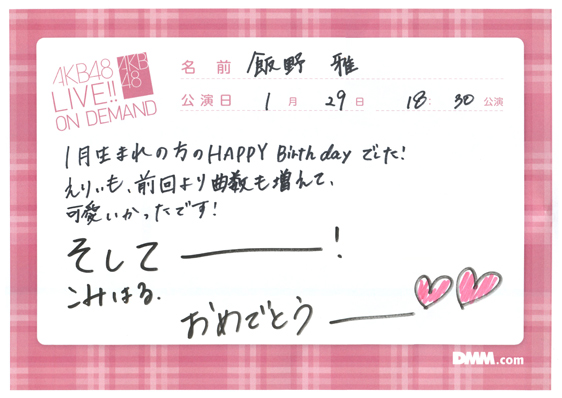 AKB48
LIVE!!
ON DEMAND
AKB
48
名 前 飯野 雅
公演日 1 月 29 日 18: 30 公演
1月生まれの方のHAPPY Birthdayでした!
えりぃも、前回より曲数も増えて、
可愛いかったです!
そして ――― !
こみはる.
おめでとう ――
DMM.com